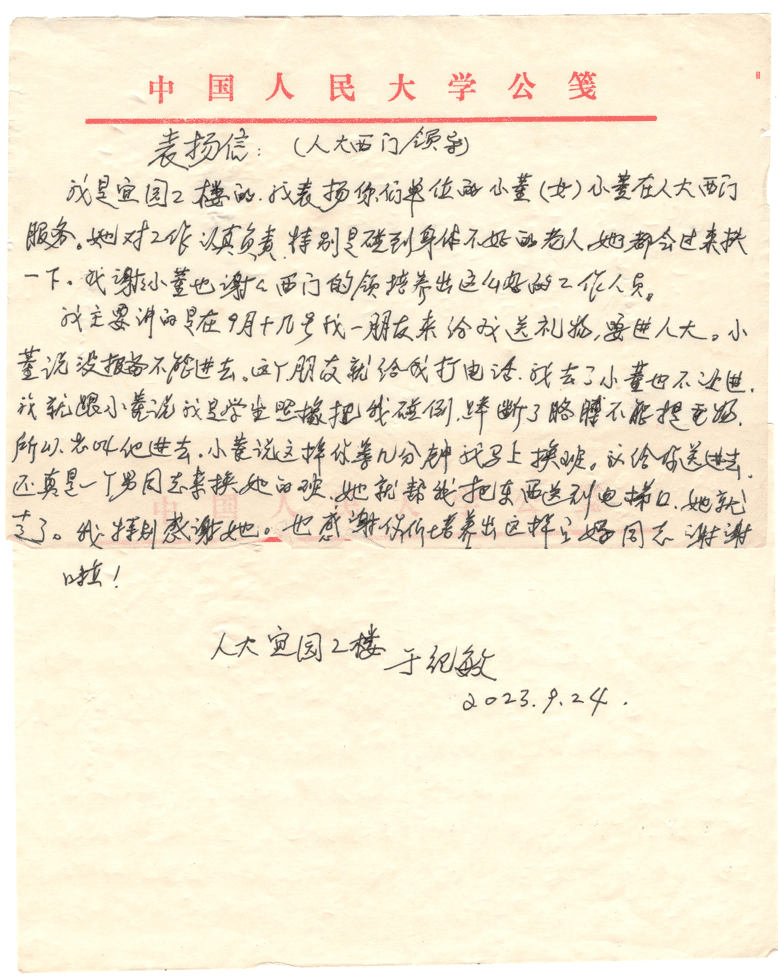 中国人民大学公笺
表扬信：（人大西门领导）
我是宜园2楼的，我表扬你们单位的小董（女）小董在人大西门
服务。她对工作认真负责，特别是碰到身体不好的老人，她都会过来扶
一下。我谢谢小董也谢谢西门的领培养出这么好的工作人员。
我主要讲的是在9月十几号我一朋友来给我送礼物，要进人大。小
董说没报备不能进去。这个朋友就给我打电话，我去了小董也不让进，
我就跟小董说我是学生照像把我碰倒，摔断了胳膊不能提重物，
所以去叫他进去。小董说这样你等几分钟我马上换班。我给你送进去，
还真是一个男同志来换她的班，她就帮我把东西送到电梯口，她就
走了。我特别感谢她。也感谢你们培养出这样的好同志 谢谢
啦！
人大宜园2楼 于纪敏
2023.9.24.